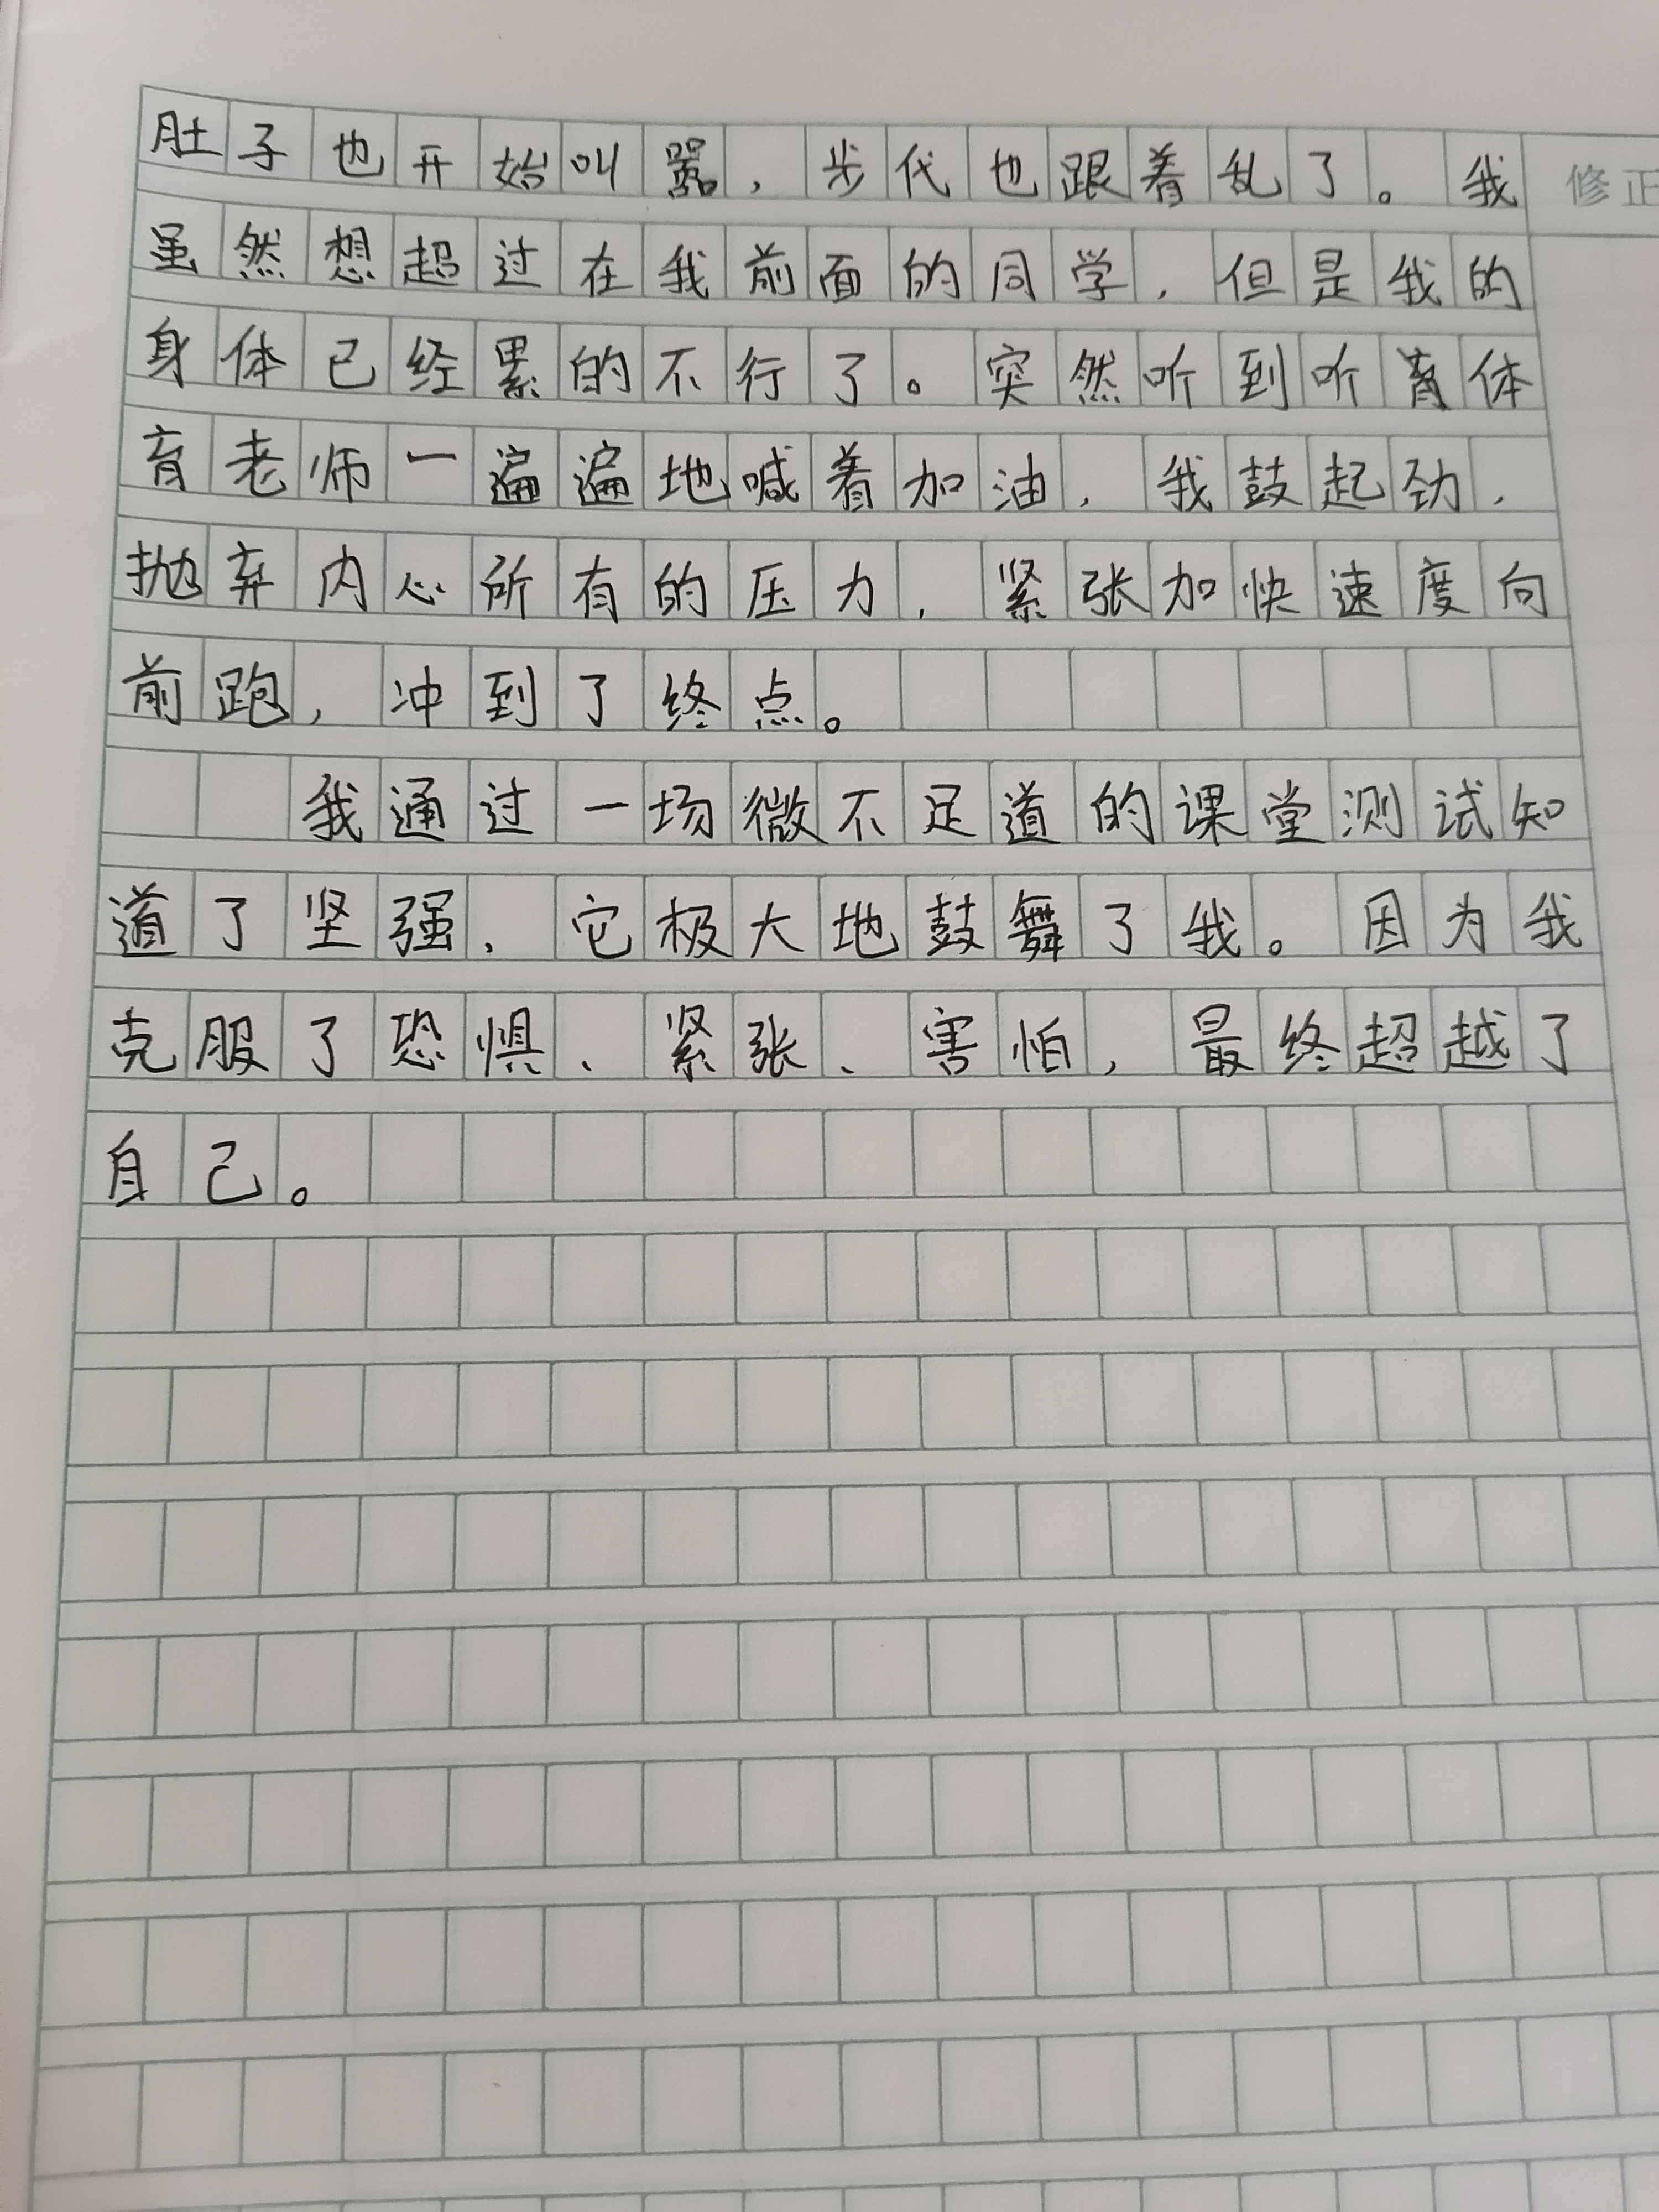 肚子也开始叫嚣，步伐也跟着乱了。我
修正
虽然想超过在我前面的同学，但是我的
身体已经累的不行了。突然听到听育体
育老师一遍遍地喊着加油，我鼓起劲，
抛弃内心所有的压力，紧张加快速度向
前跑，冲到了终点。
我通过一场微不足道的课堂测试知
道了坚强，它极大地鼓舞了我。因为我
克服了恐惧、紧张、害怕，最终超越了
自己。